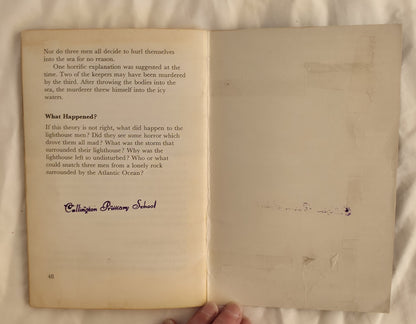 Nor do three men all decide to hurl themselves
into the sea for no reason.
One horrific explanation was suggested at the
time. Two of the keepers may have been murdered
by the third. After throwing the bodies into the
sea, the murderer threw himself into the icy
waters.
What Happened?
If this theory is not right, what did happen to the
lighthouse men? Did they see some horror which
drove them all mad? What was the storm that
surrounded their lighthouse? Why was the
lighthouse left so undisturbed? Who or what
could snatch three men from a lonely rock
surrounded by the Atlantic Ocean?
Callington Primary School
48